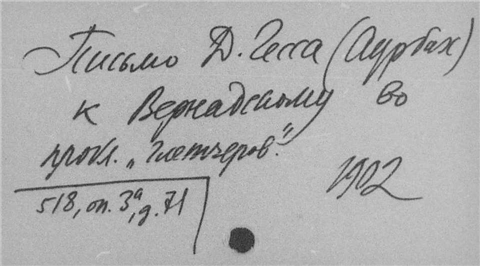 Письмо Д. Гесса (Аурбах)
к Вернадскому во
пробл. „Глетчеров".
1902
518, оп. 3а, д. 71